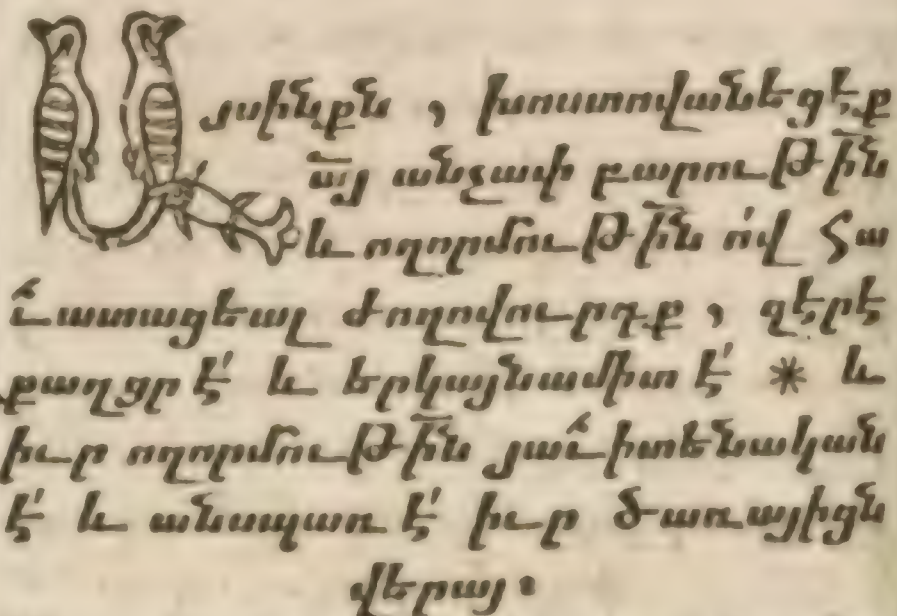 Այսինքն , խոստովանեցէ՛ք
ա̄յ անչափ բարութի̄ն
և ողորմութի̄ն ո՛վ Հա
ւ̃ատացեալ ժողովուրդք , զէրէ
քաղցր է՛ և երկայնամիտ է՛ * և
իւր ողորմութի̄ն յաւ̃իտենական
է՛ և անսպառ է՛ իւր ծառայիցն
վերայ ։